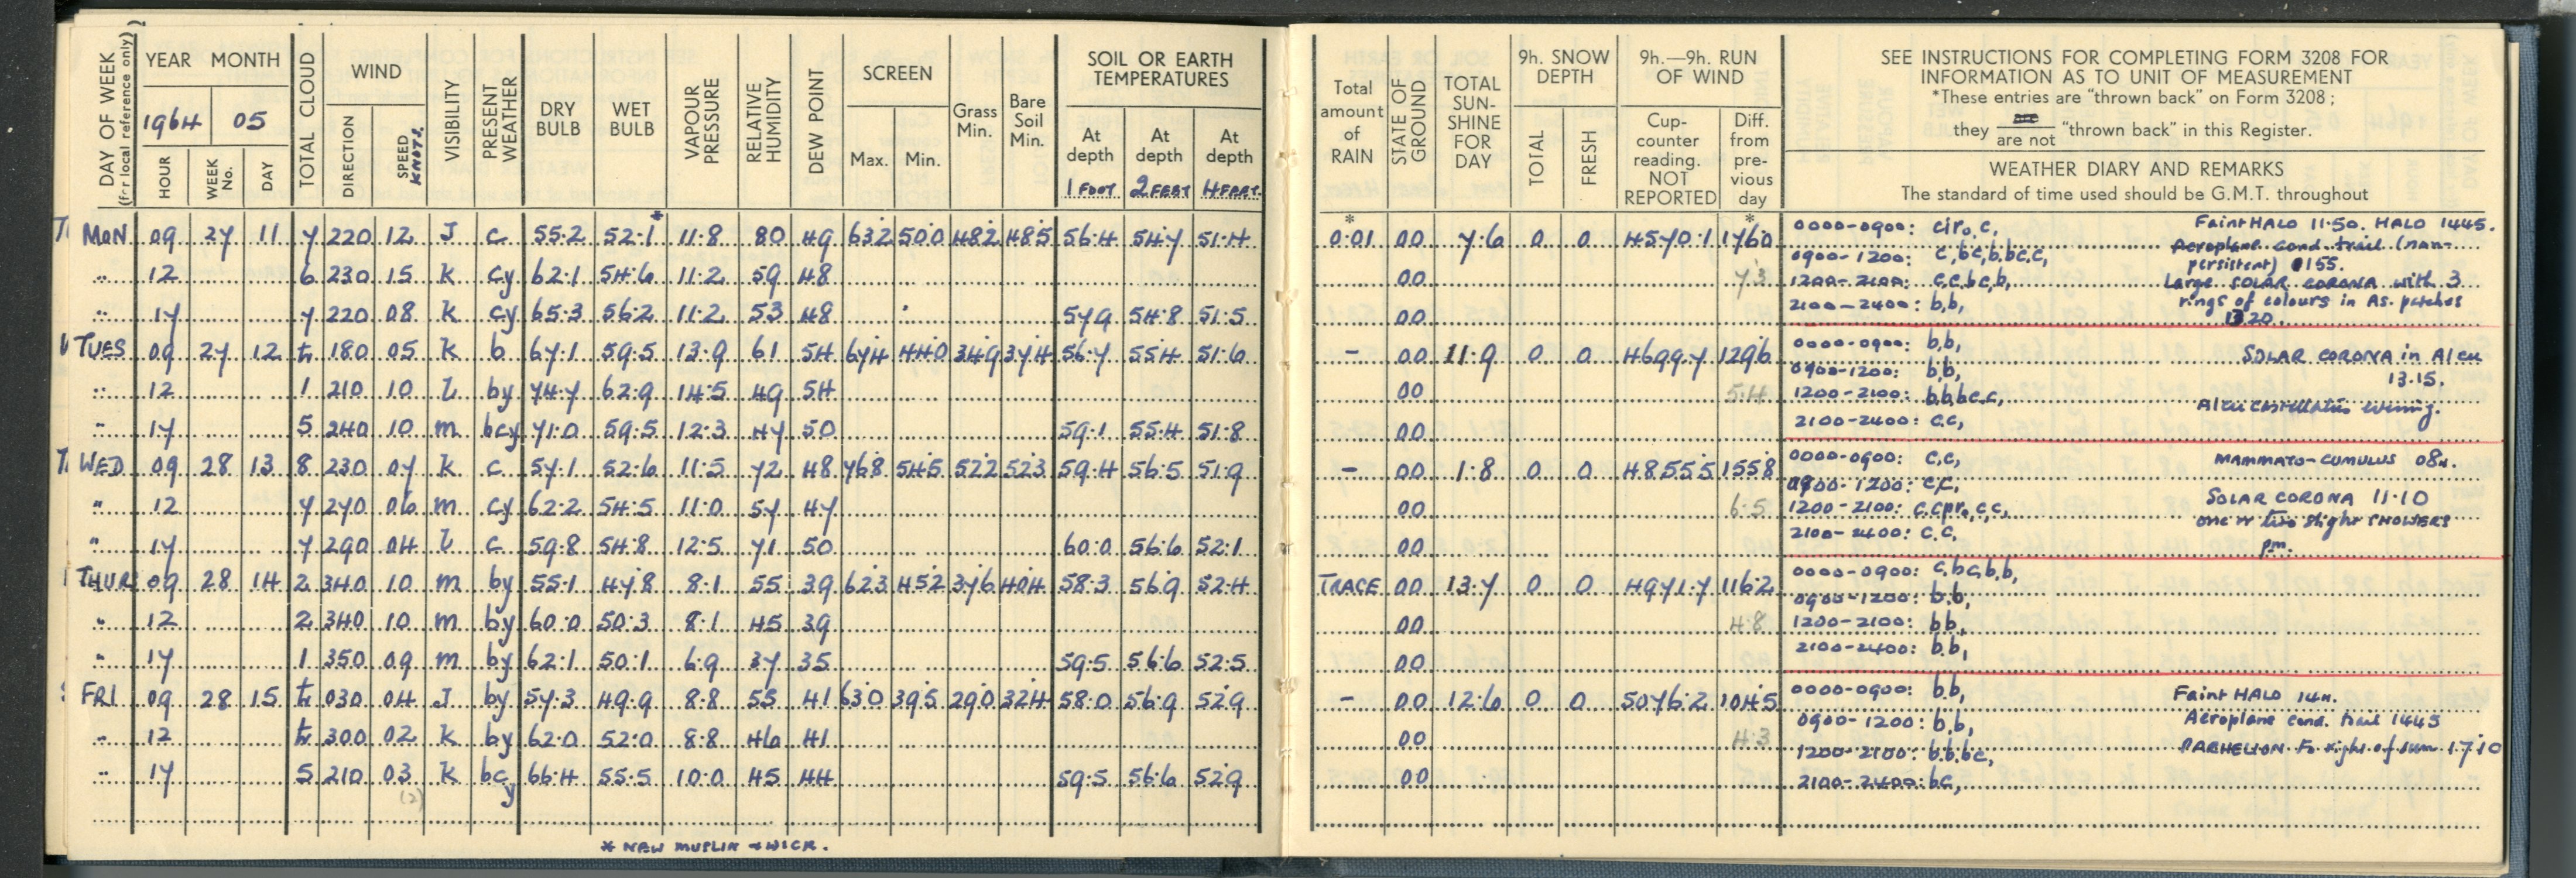 DAY OF WEEK
(for local reference only)
YEAR MONTH
1964 05
HOUR
WEEK No.
DAY
TOTAL CLOUD
WIND
DIRECTION
SPEED KNOTS.
VISIBILITY
PRESENT WEATHER
DRY BULB
WET BULB
VAPOUR PRESSURE
RELATIVE HUMIDITY
DEW POINT
SCREEN
Max. Min.
Grass Min.
Bare Soil Min.
SOIL OR EARTH
TEMPERATURES
At depth 1 FOOT
At depth 2 FEET
At depth 4 FEET.
MON 09 27 11 7 220 12 J c 55.2 52.1* 11.8 80 49 63.2 50.0 48.2 48.5 56.4 54.7 51.4
" 12 6 230 15 k cy 62.1 54.6 11.2 59 48
" 17 7 220 08 k cy 65.3 56.2 11.2 53 48 57.9 54.8 51.5
TUES 09 27 12 tr 180 05 k b 67.1 59.5 13.9 61 54 67.4 44.0 34.9 37.4 56.7 55.4 51.6
" 12 1 210 10 l by 74.7 62.9 14.5 49 54
" 17 5 240 10 m bcy 71.0 59.5 12.3 47 50 59.1 55.4 51.8
WED 09 28 13 8 230 07 k c 57.1 52.6 11.5 72 48 76.8 54.5 52.2 52.3 59.4 56.5 51.9
" 12 7 270 06 m cy 62.2 54.5 11.0 57 47
" 17 7 290 04 l c 59.8 54.8 12.5 71 50 60.0 56.6 52.1
THUR 09 28 14 2 340 10 m by 55.1 47.8 8.1 55 39 62.3 45.2 37.6 40.4 58.3 56.9 52.4
" 12 2 340 10 m by 60.0 50.3 8.1 45 39
" 17 1 350 09 m by 62.1 50.1 6.9 37 35 59.5 56.6 52.5
FRI 09 28 15 tr 030 04 J by 57.3 49.9 8.8 55 41 63.0 39.5 29.0 32.4 58.0 56.9 52.9
" 12 tr 300 02 k by 62.0 52.0 8.8 46 41
" 17 5 210 03 k bcy 66.4 55.5 10.0 45 44 59.5 56.6 52.9
(2)
* NEW MUSLIN + WICK.
Total amount of RAIN
STATE OF GROUND
TOTAL SUN-SHINE FOR DAY
9h. SNOW DEPTH
TOTAL
FRESH
9h.—9h. RUN OF WIND
Cup-counter reading. NOT REPORTED
Diff. from pre-vious day
SEE INSTRUCTIONS FOR COMPLETING FORM 3208 FOR
INFORMATION AS TO UNIT OF MEASUREMENT
*These entries are "thrown back" on Form 3208;
they are / are not "thrown back" in this Register.
WEATHER DIARY AND REMARKS
The standard of time used should be G.M.T. throughout
* *
0.01 00 7.6 0 0 4570.1 176.0
00 7.3
00
0000-0900: cir₀,c,
0900-1200: c,bc,b,bc,c,
1200-2100: c,c,bc,b,
2100-2400: b,b,
Faint HALO 11.50. HALO 1445.
Aeroplane cond. trail (non-
persistent) 1155.
Large SOLAR CORONA with 3
rings of colours in As. patches
1320.
- 00 11.9 0 0 4699.7 129.6
00 5.4
00
0000-0900: b,b,
0900-1200: b,b,
1200-2100: b,b,bc,c,
2100-2400: c,c,
SOLAR CORONA in Alcu
13.15.
Alcu castellatus evening.
- 00 1.8 0 0 4855.5 155.8
00 6.5
00
0000-0900: c,c,
0900-1200: c,c,
1200-2100: c,c,pr₀,c,c,
2100-2400: c,c,
MAMMATO-CUMULUS 08H.
SOLAR CORONA 11.10
one or two slight SHOWERS
pm.
TRACE 00 13.7 0 0 4971.7 116.2
00 4.8
00
0000-0900: c,bc,b,b,
0900-1200: b,b,
1200-2100: b,b,
2100-2400: b,b,
- 00 12.6 0 0 5076.2 104.5
00 4.3
00
0000-0900: b,b,
0900-1200: b,b,
1200-2100: b,b,bc,
2100-2400: bc,
Faint HALO 14H.
Aeroplane cond. trail 1445
PARHELION to right of sun 17.10